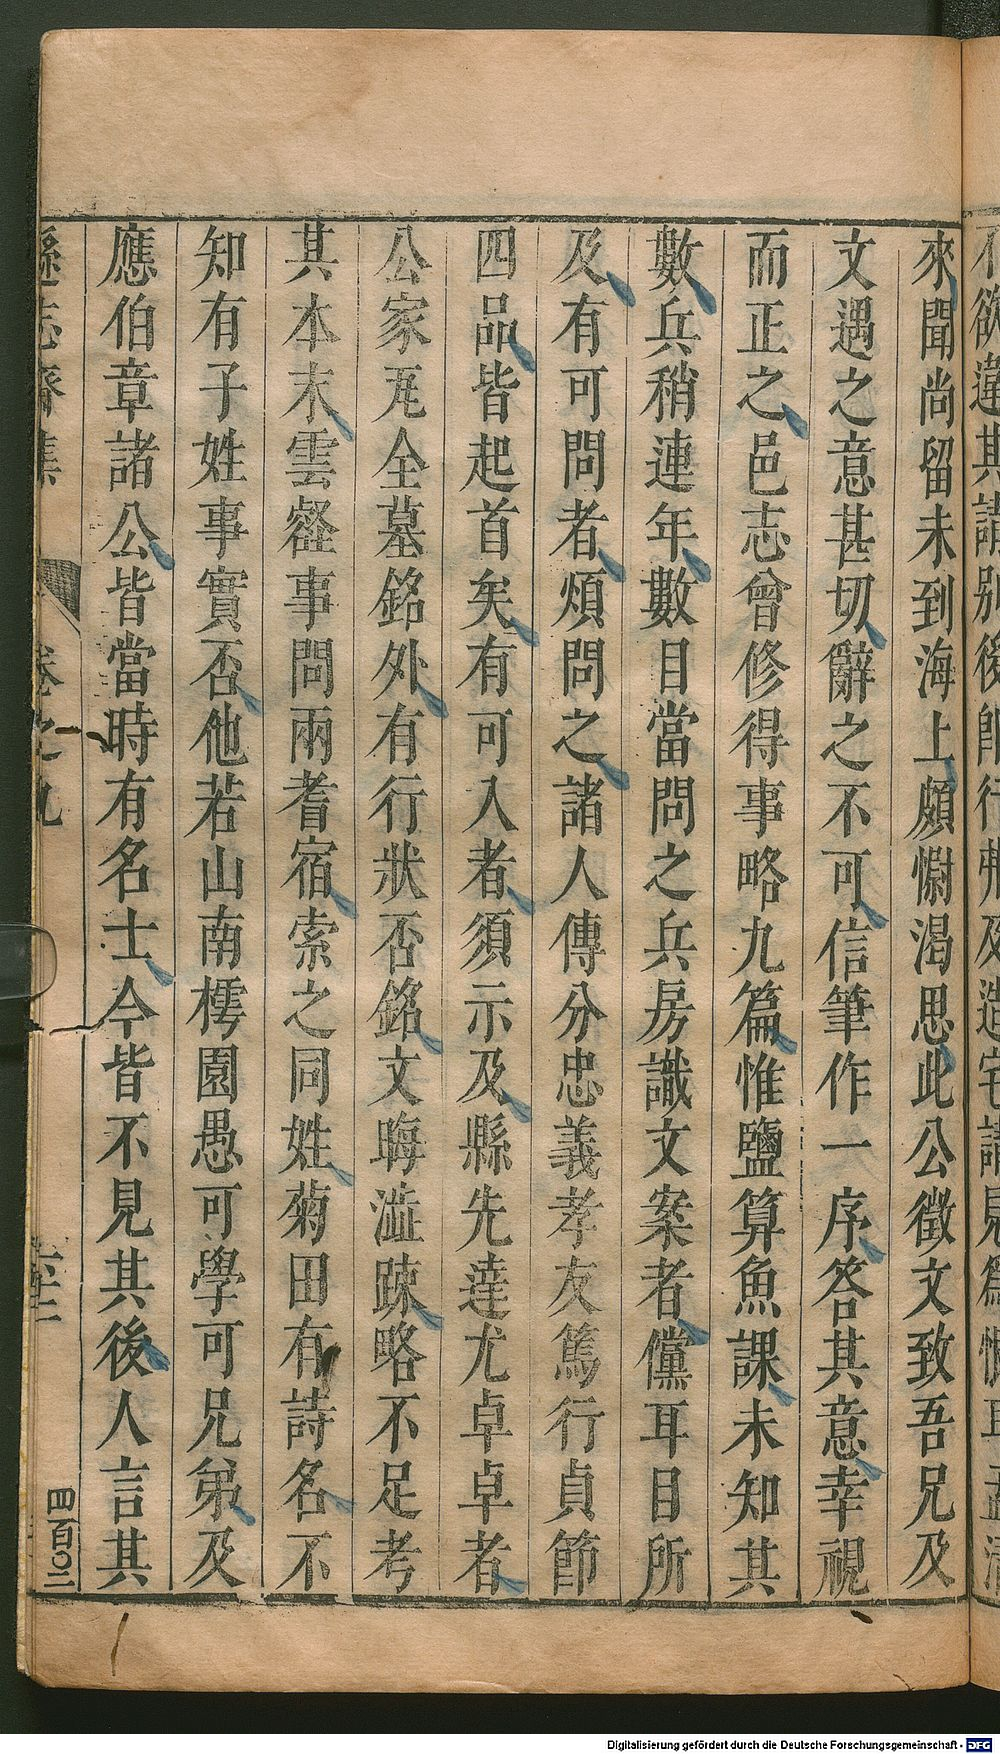 來聞尚留未到海上頗懰渴思此公徵文致吾兄及
文遇之意甚切辭之不可信筆作一序答其意幸視
而正之邑志曾修得事略九篇惟鹽算魚課未知其
數兵稍連年數目當問之兵房識文案者儻耳目所
及有可問者煩問之諸人傳分忠義孝友篤行貞節
四品皆起首矣有可入者須示及縣先達尤卓卓者
公家旡全墓銘外有行狀否銘文晦澁踈略不足考
其本末雲壑事問兩耆宿索之同姓菊田有詩名不
知有子姓事實否他若山南樗園愚可學可兄弟及
應伯章諸公皆當時有名士今皆不見其後人言其
遜志齋集
卷之九
四百〇二
Digitalisierung gefördert durch die Deutsche Forschungsgemeinschaft - DFG